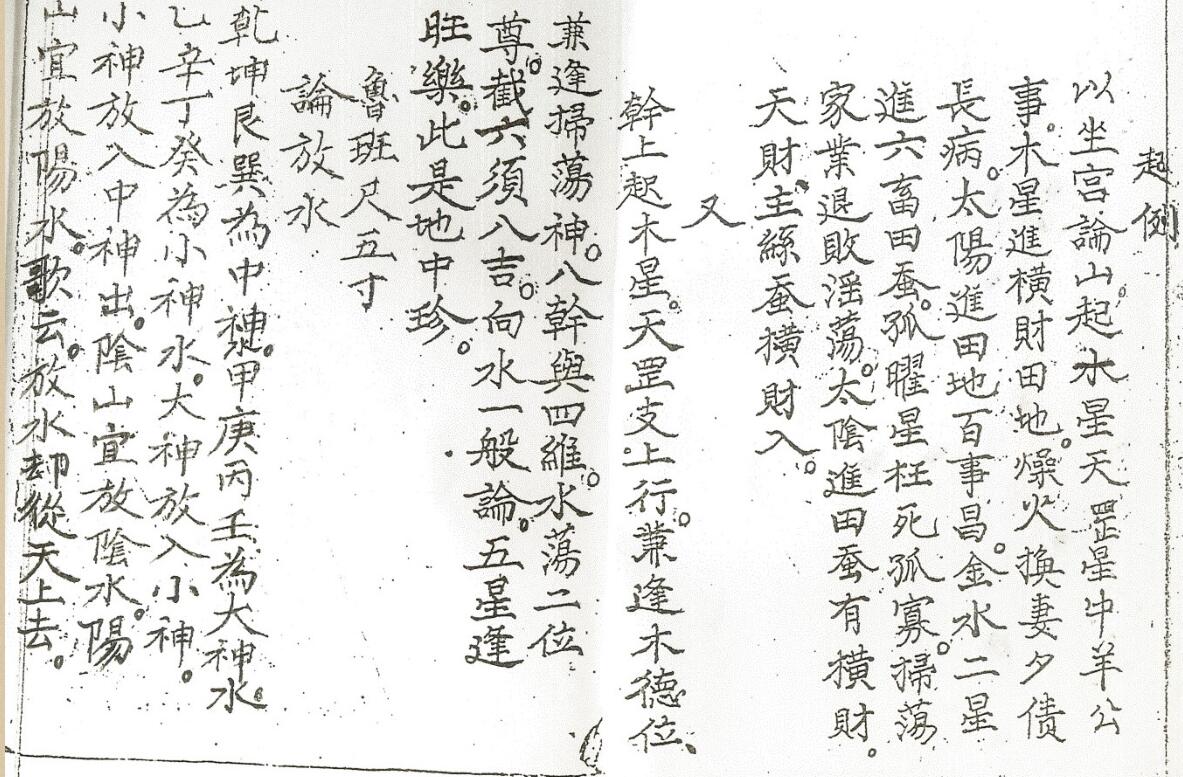 起例
以坐宮論山。起木星天罡星牛羊公
事。木星進橫財田地。燥火換妻夕債
長病。太陽進田地百事昌。金水二星
進六畜田蚕。孤曜星枉死孤寡。掃蕩
家業退敗淫蕩。太陰進田蚕有橫財。
天財主絲蚕橫財入。
又
幹上起木星。天罡支上行。兼逢木德位、
兼逢掃蕩神。八幹與四維。水蕩二位
尊。截六須八吉。向水一般論。五星逢
旺樂。此是地中珍。
魯班尺五寸
論放水
乾坤艮巽為中神。甲庚丙壬為大神水。
乙辛丁癸為小神水。大神放入小神。
小神放入中神出。陰山宜放陰水。陽
山宜放陽水。歌云。放水却從天上去。